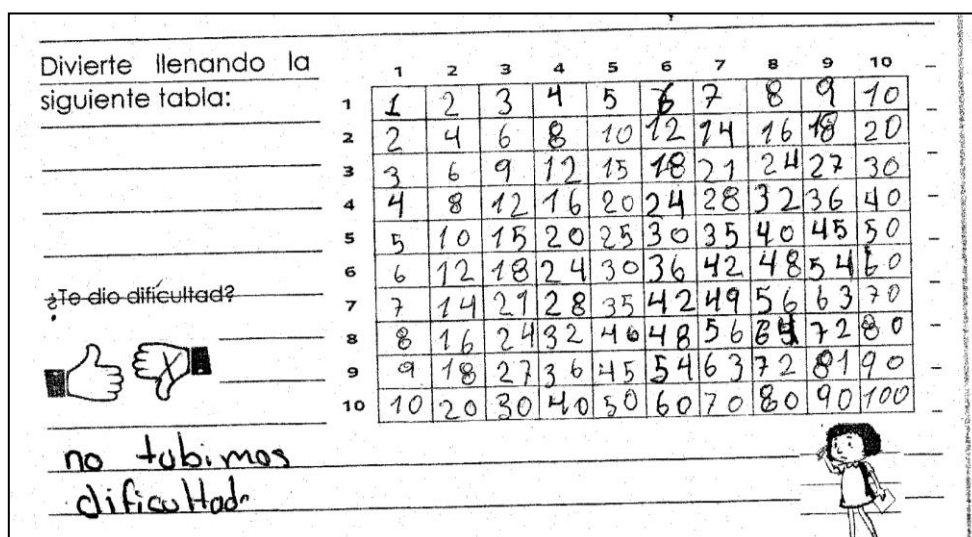 Divierte llenando la
siguiente tabla:
1 2 3 4 5 6 7 8 9 10
1 1 2 3 4 5 6 7 8 9 10
2 2 4 6 8 10 12 14 16 18 20
3 3 6 9 12 15 18 21 24 27 30
4 4 8 12 16 20 24 28 32 36 40
5 5 10 15 20 25 30 35 40 45 50
6 6 12 18 24 30 36 42 48 54 60
7 7 14 21 28 35 42 49 56 63 70
8 8 16 24 32 40 48 56 64 72 80
9 9 18 27 36 45 54 63 72 81 90
10 10 20 30 40 50 60 70 80 90 100
¿Te dio dificultad?
no tubimos
dificultad.